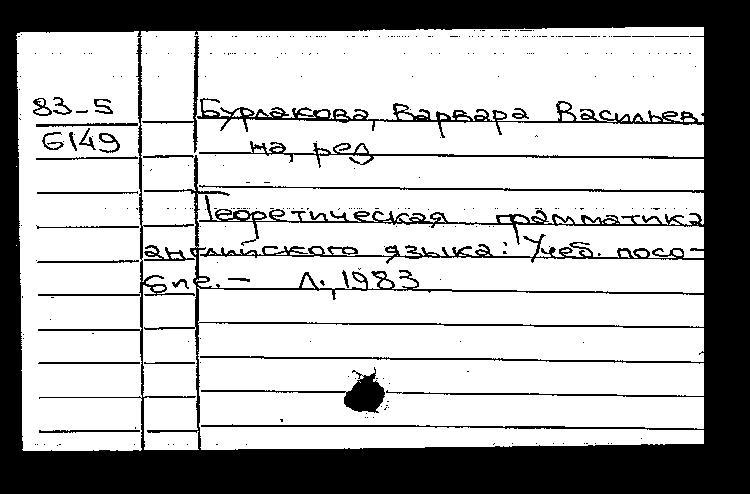 83-5
6149
Бурлакова, Варвара Васильев-
на, ред
Теоретическая грамматика
английского языка: Учеб. посо-
бие. - Л., 1983